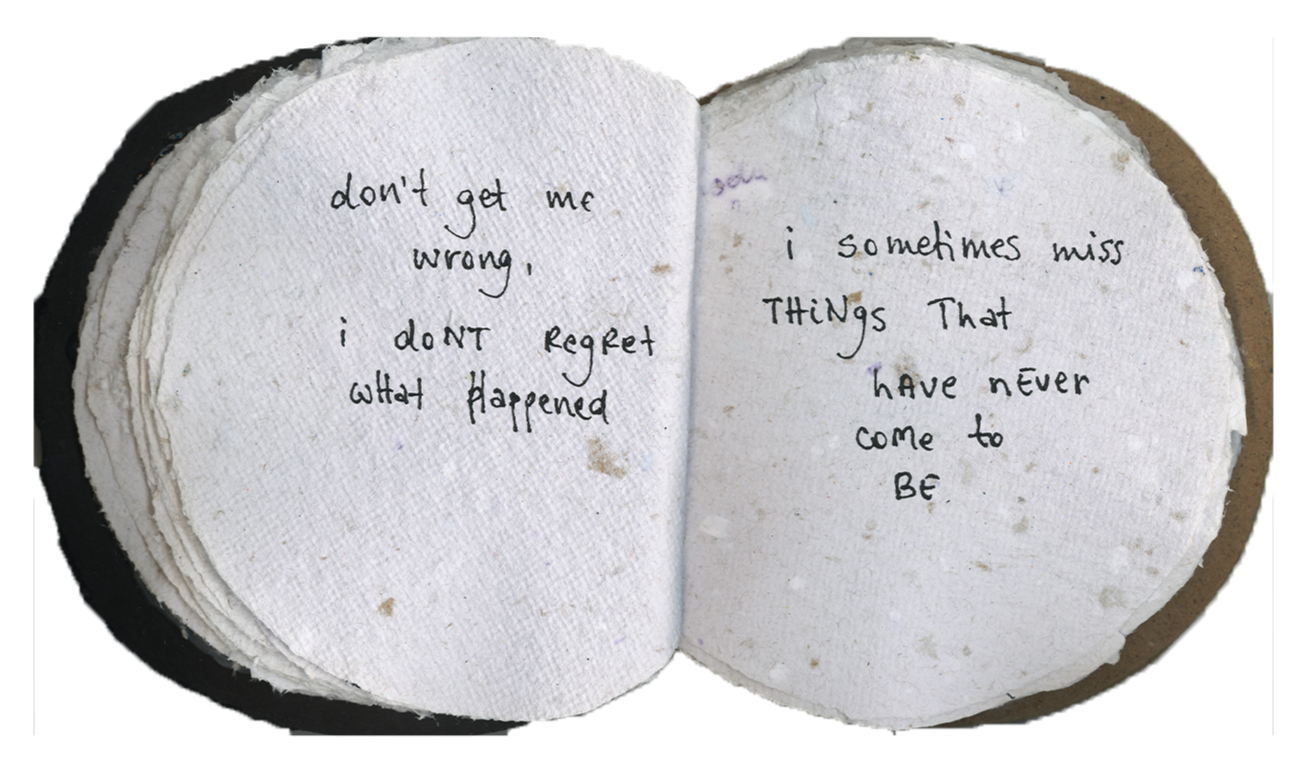 don't get me
wrong,
i doNT RegRet
wHat Happened
i sometimes miss
THiNgs That
hAve nEver
come to
BE